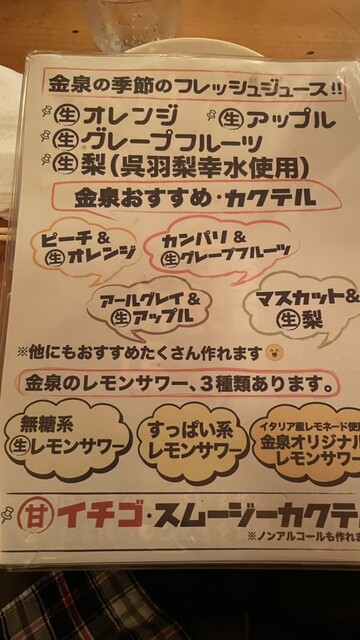 金泉の季節のフレッシュジュース!!
生オレンジ 生アップル
生グレープフルーツ
生梨(呉羽梨幸水使用)
金泉おすすめ・カクテル
ピーチ&
生オレンジ
カンパリ&
生グレープフルーツ
アールグレイ&
生アップル
マスカット&
生梨
※他にもおすすめたくさん作れます
金泉のレモンサワー、3種類あります。
無糖系
生レモンサワー
すっぱい系
レモンサワー
イタリア産レモネード使用
金泉オリジナル
レモンサワー
甘イチゴ・スムージーカクテル
※ノンアルコールも作れま